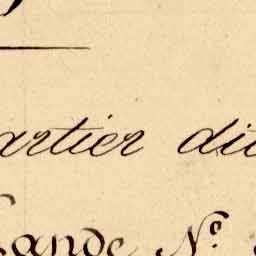 artier dit
ande N°.